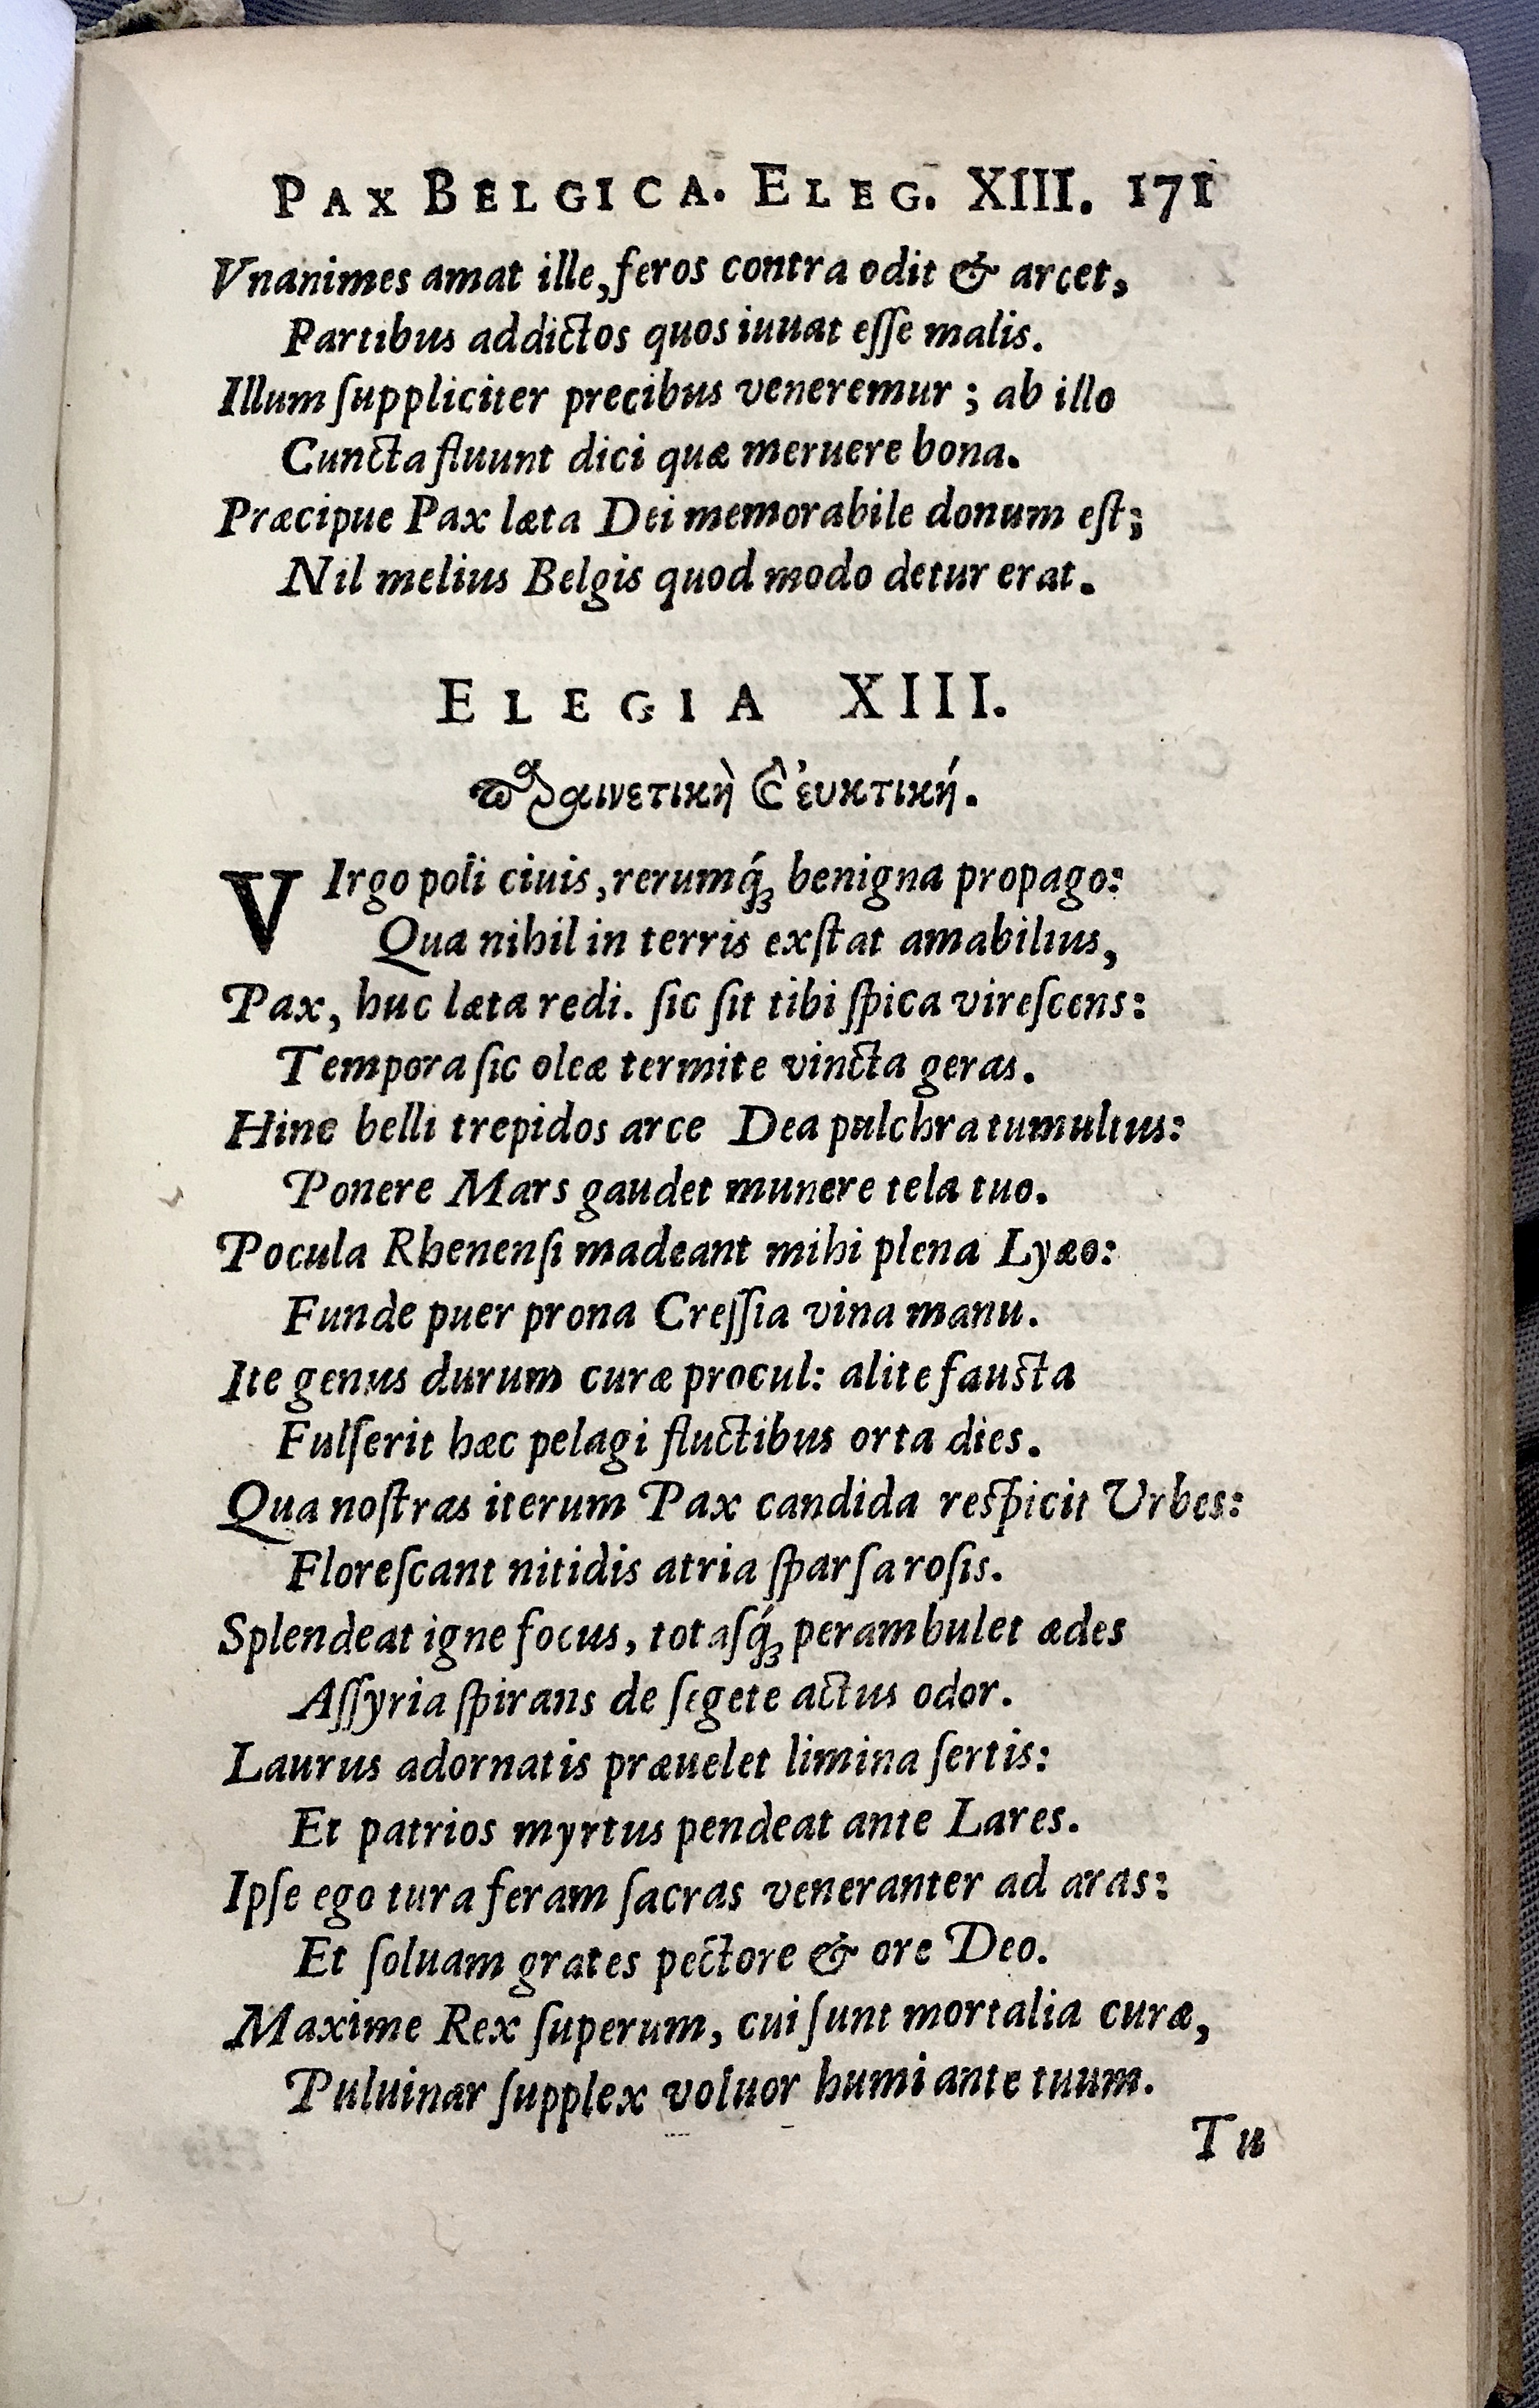 PAX BELGICA. ELEG. XIII. 171
Vnanimes amat ille, feros contra odit & arcet,
Partibus addictos quos iuuat eſſe malis.
Illum ſuppliciter precibus veneremur ; ab illo
Cuncta fluunt dici quæ meruere bona.
Præcipue Pax læta Dei memorabile donum eſt;
Nil melius Belgis quod modo detur erat.
ELEGIA XIII.
ϖαραινετικὴ ϗ̀ ἐυκτική.
VIrgo poli ciuis, rerumq́; benigna propago:
Qua nihil in terris exſtat amabilius,
Pax, huc læta redi. ſic ſit tibi ſpica vireſcens:
Tempora ſic oleæ termite vincta geras.
Hinc belli trepidos arce Dea pulchra tumultus:
Ponere Mars gaudet munere tela tuo.
Pocula Rhenenſi madeant mihi plena Lyæo:
Funde puer prona Creſſia vina manu.
Ite genus durum curæ procul: alite fausta
Fulſerit hæc pelagi fluctibus orta dies.
Qua noſtras iterum Pax candida respicit Vrbes:
Floreſcant nitidis atria ſparſa roſis.
Splendeat igne focus, totaſq́; perambulet ædes
Aſſyria ſpirans de ſegete actus odor.
Laurus adornatis præuelet limina ſertis:
Et patrios myrtus pendeat ante Lares.
Ipſe ego tura feram ſacras veneranter ad aras:
Et ſoluam grates pectore & ore Deo.
Maxime Rex ſuperum, cui ſunt mortalia curæ,
Puluinar ſupplex voluor humi ante tuum.
Tu